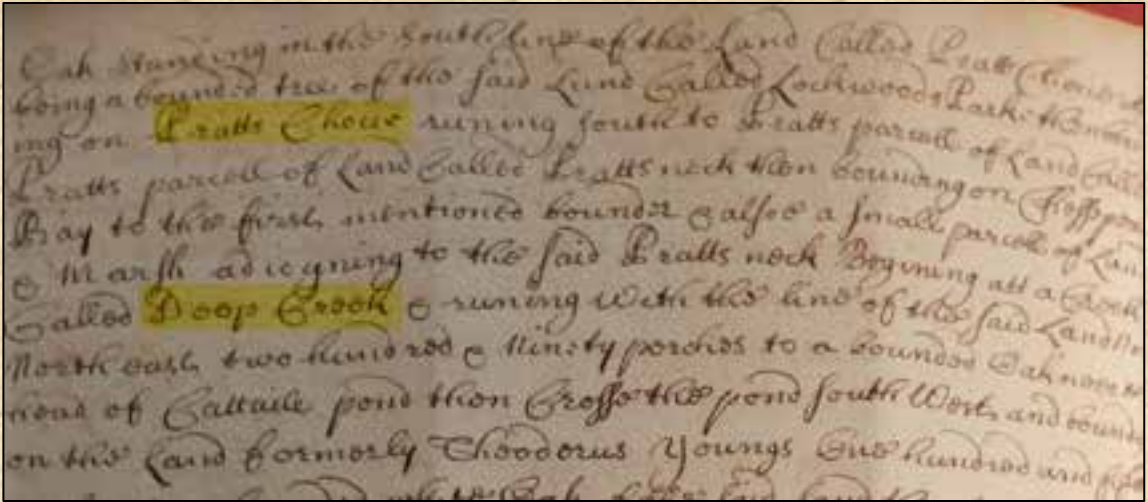 Oak standing in the South line of the Land Called Pratts Choice
being a bounded tree of the said Land Called Lockwoods Park then
ing on Pratts Choice runing South to Pratts parcell of Land Call
Pratts parcell of Land Called Pratts neck then bounding on
Bay to the first mentioned bounder & alsoe a small parcell of Lan
& Marsh adioyning to the said Pratts neck Begining att a Creek
Called Deep Creek & runing with the line of the said Land
North east two hundred & Ninety perches to a bounded Oak
head of Cattaile pond then Crosse the pond South West and bound
on the Land formerly Theodorus Youngs One hundred and